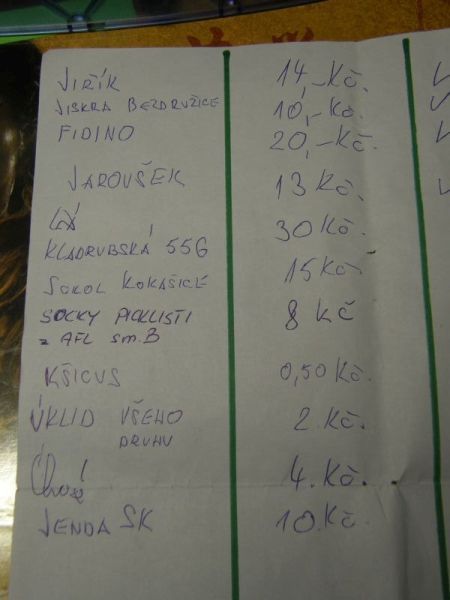 JIŘÍK 14,-Kč.
JISKRA BEZDRUŽICE 10,-Kč.
FIDINO 20,-Kč.
JAROUŠEK 13 Kč.
KLADRUBSKÁ 556 30 Kč.
SOKOL KOKAŠICE 15 Kč
SOCKY PICKLISTI 8 kč
z AFL sm.B
KŠICUS 0,50 Kč.
ÚKLID VŠEHO 2 Kč.
DRUHU
4. Kč.
JENDA SK 10. Kč.